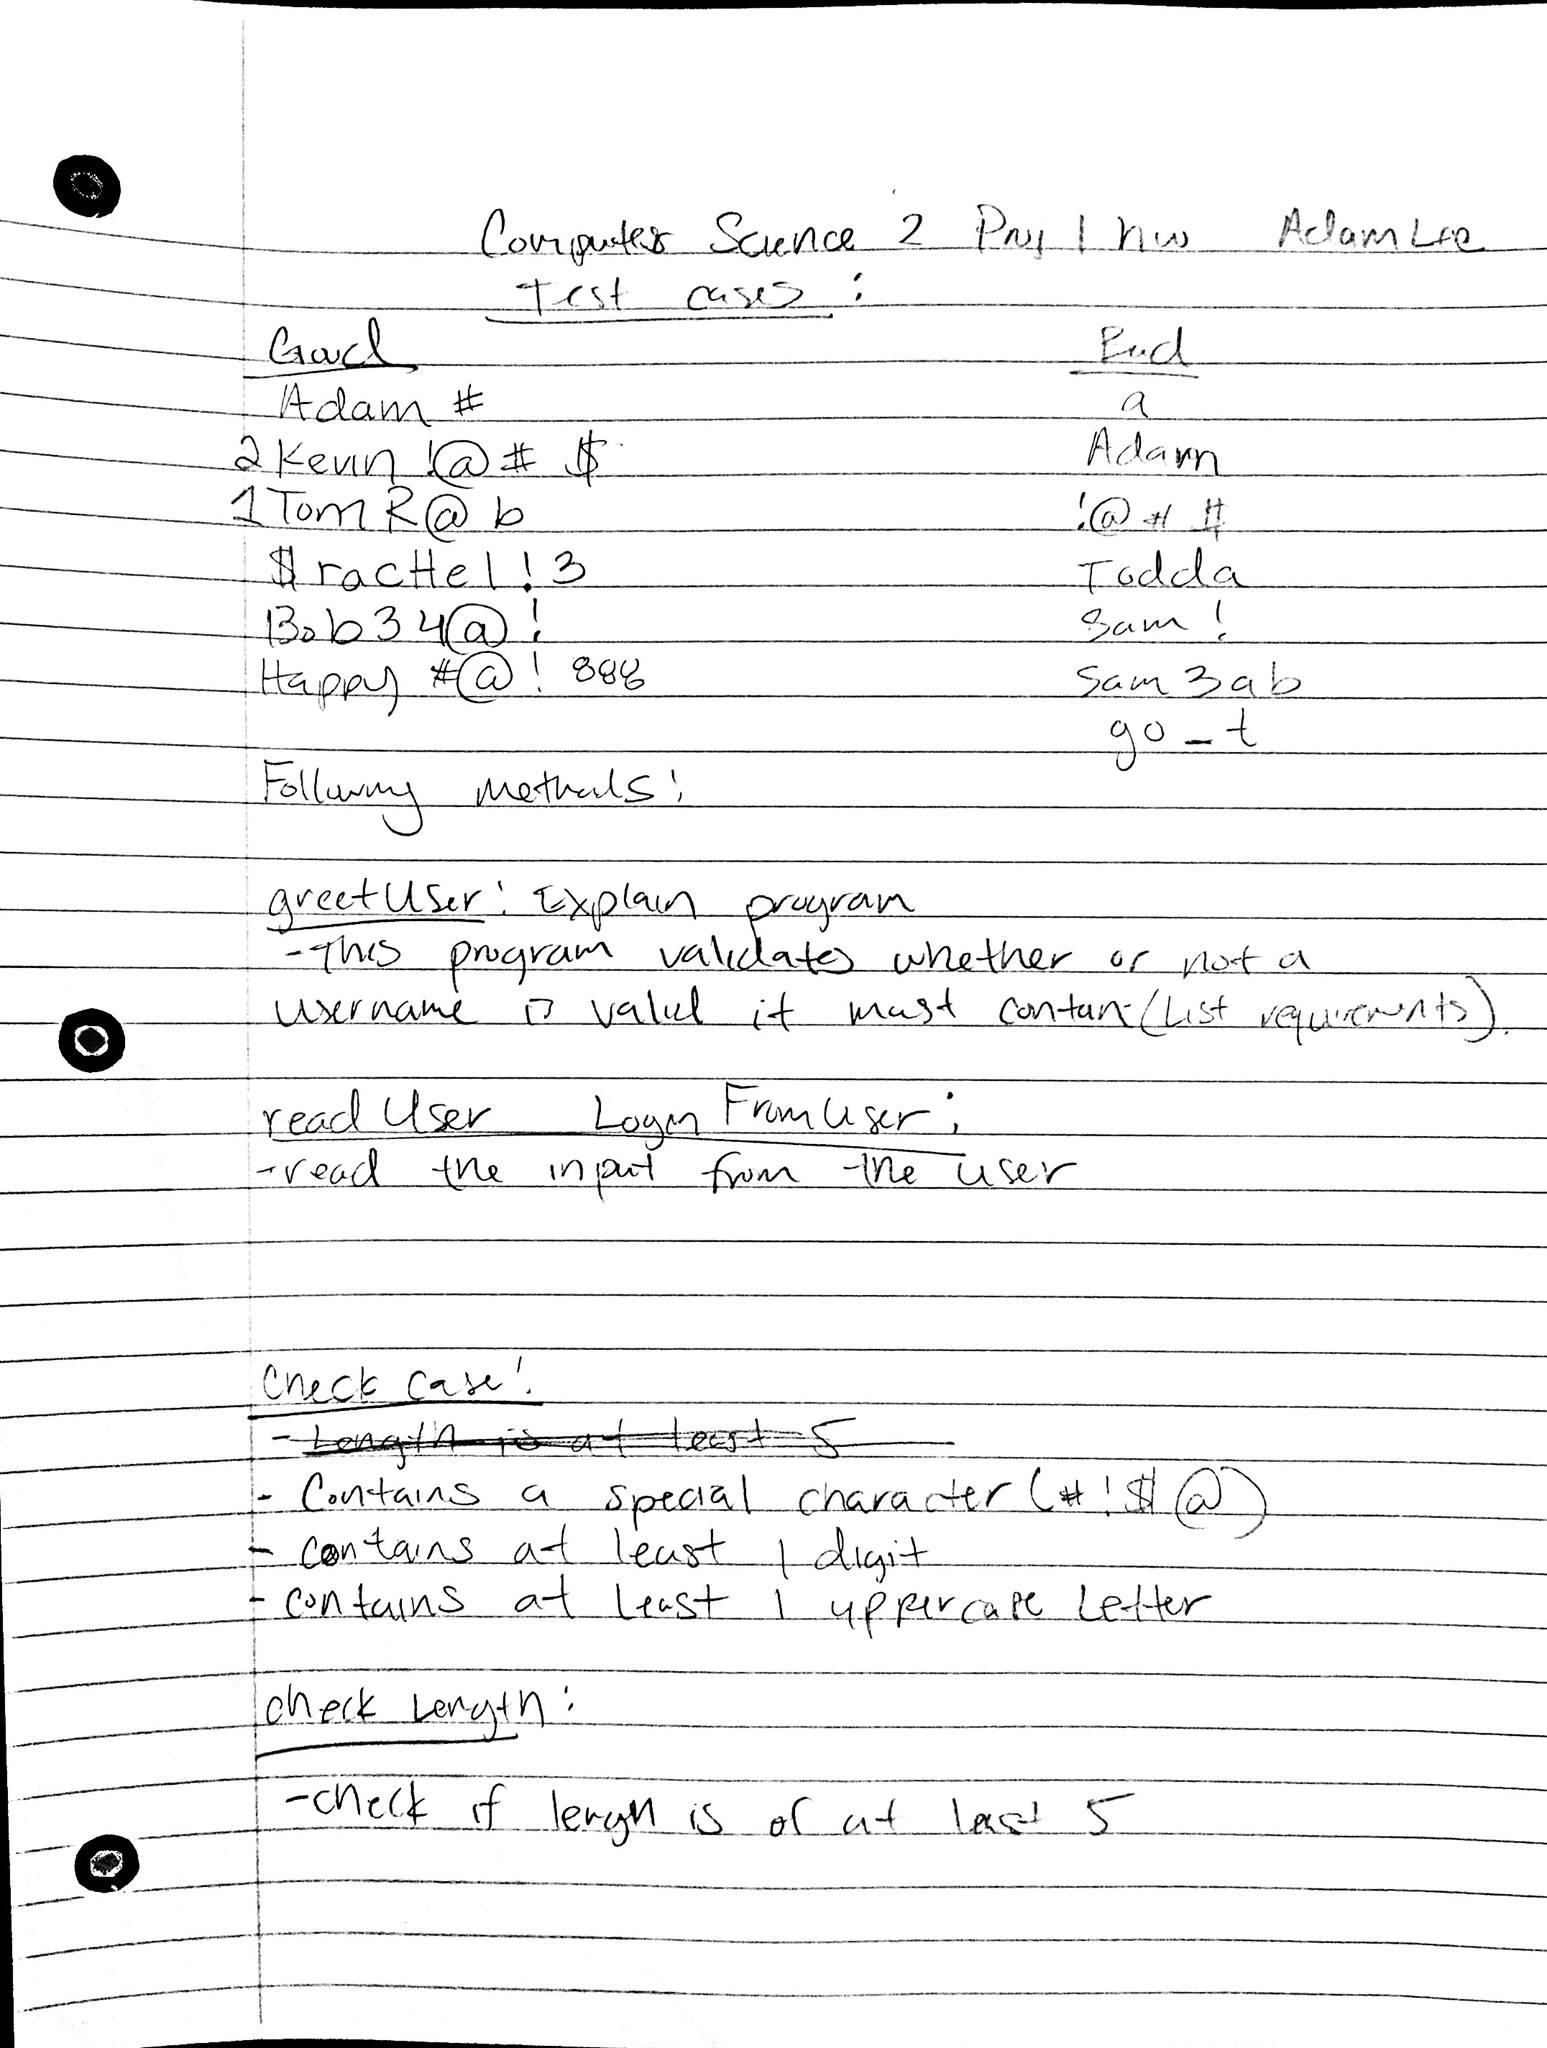 Computer Science 2 Proj 1 hw Adam Lee
Test cases :
Good Bad
Adam # a
2 Kevin !@# $ Adam
1 Tom R@b !@# $
$racHel!3 Todda
Bob34@! Sam!
Happy #@! 888 Sam3ab
go_t
Following Methods:
greetUser: Explain program
- This program validates whether or not a
username is valid it must contain (List requirements).
read User Login From User :
- read the input from the user
Check Case:
- Length is at least 5
- Contains a special character (#!$@)
- contains at least 1 digit
- contains at least 1 uppercase Letter
check Length :
- check if lengh is of at least 5